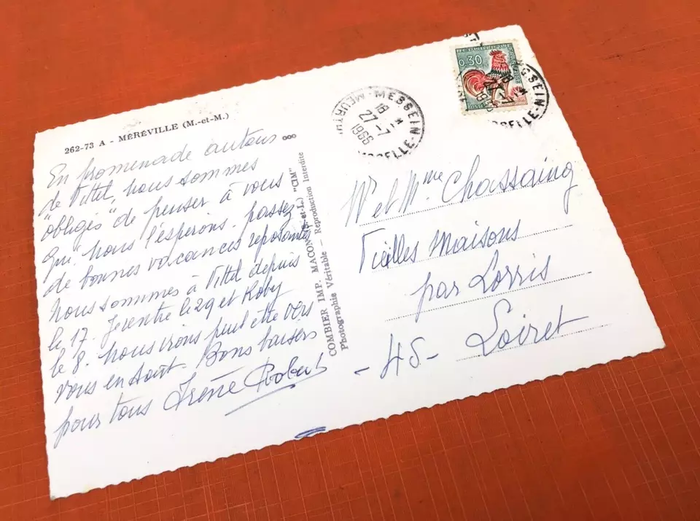 262-73 A - MÉRÉVILLE (M.-et-M.)
En promenade autour
de Vittel, nous sommes
"obligés" de penser à vous
qui, nous l'espérons, passez
de bonnes vacances reposantes
nous sommes à Vittel depuis
le 17.
le 8. nous irons peut être vers
vous en août. Bons baisers
pour tous Irène Robert
COMBIER IMP. MACON (S.-et-L.) "CIM"
Photographie Véritable - Reproduction Interdite
MESSEIN
18 *
27-7
1966
MEURTHE
MOSELLE
0,30
M et Mme Chassaing
Vieilles Maisons
par Lorris
-45- Loiret